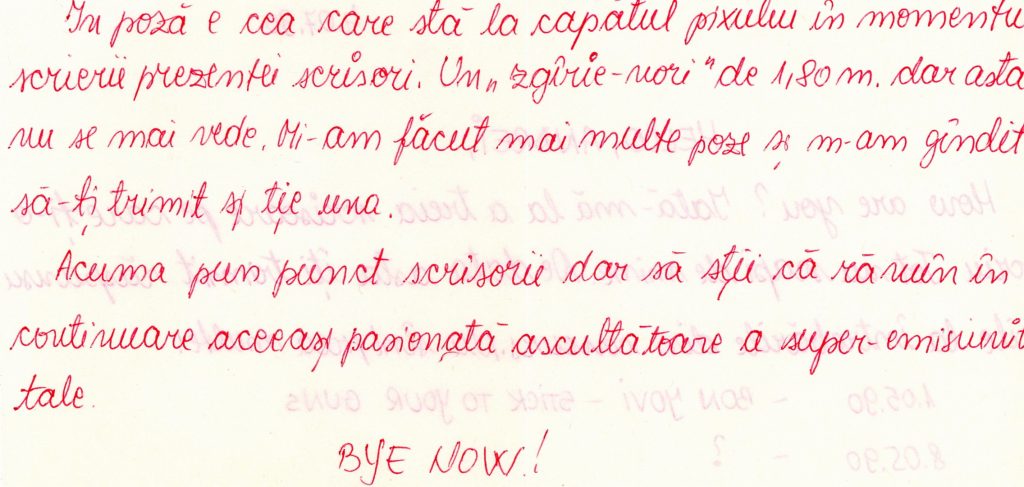 În poză e cea care stă la capătul pixului în momentu
scrierii prezentei scrisori. Un „zgîrie-nori" de 1,80 m. dar asta
nu se mai vede. Mi-am făcut mai multe poze și m-am gîndit
să-ți trimit și ție una.
Acuma pun punct scrisorii dar să știi că rămîn în
continuare aceeași pasionată ascultătoare a super-emisiunii
tale.
BYE NOW!